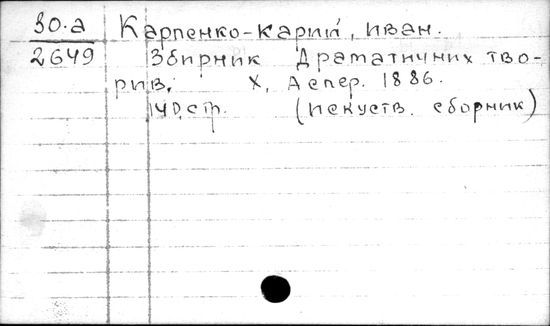 30.а Карпенко-карий, иван.
2649 Збирник Драматичних тво-
рив. Х, Аспер. 1886.
140 стр. (искуств. сборник)